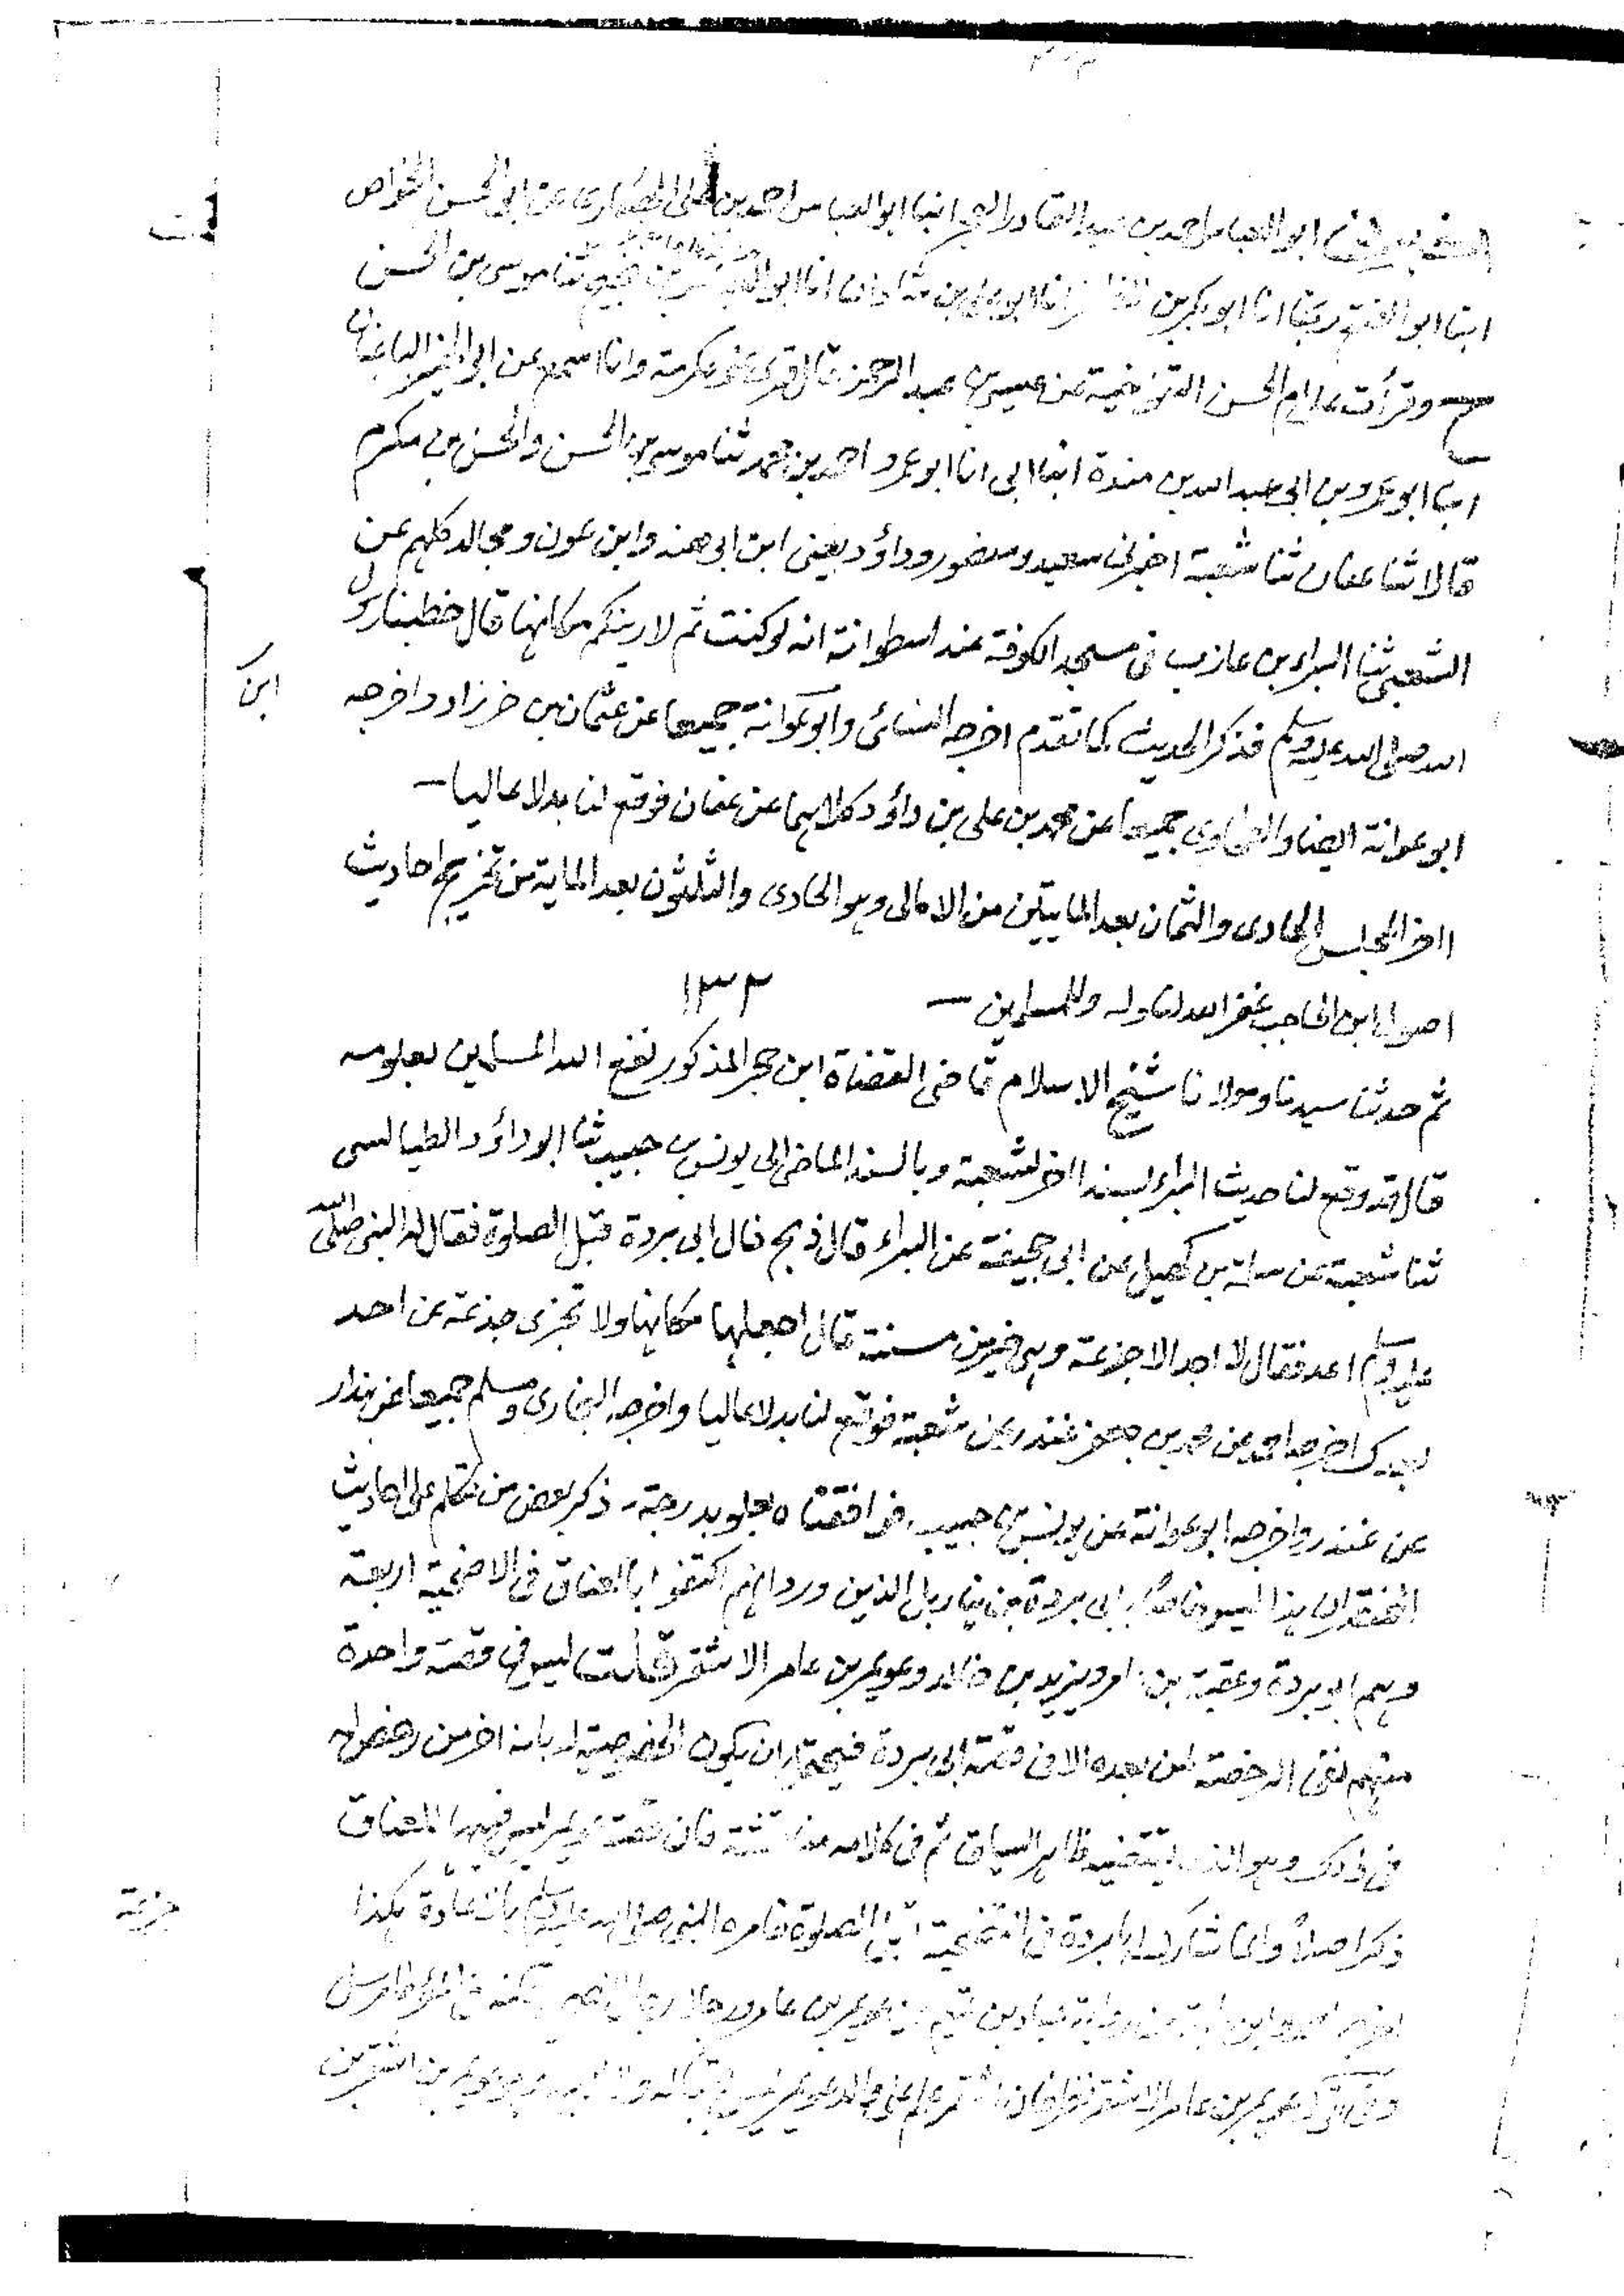 ابو العباس احمد بن عبد القادر انبا ابو العباس احمد بن على عن ابى الحسن الخواص
انبا ابو الفتح انا ابو بكر بن انا ابو على بن شاذان انا ثنا موسى بن الحسن
ح وقرأت على ام الحسن التنوخية عن عيسى بن عبد الرحمن قال قرئ على كريمة وانا اسمع عن ابى الخير الباغبان
انبا ابو عمرو بن ابى عبد الله بن مندة انبا ابى انا ابو عمرو احمد بن محمد ثنا موسى بن الحسن والحسن بن مكرم
قالا ثنا عفان ثنا شعبة اخبرنى سعيد ومنصور وداؤد يعنى ابن ابى هند وابن عون ومجالد كلهم عن
الشعبى ثنا البراء بن عازب فى مسجد الكوفة عند اسطوانة انه لوكنت ثم لاريتكم مكانها قال خطبنا رسول
ابن
الله صلى الله عليه وسلم فذكر الحديث كما تقدم اخرجه النسائى وابو عوانة جميعا عن عثمان بن خرزاد واخرجه
ابو عوانة ايضا والطحاوى جميعا عن محمد بن على بن داؤد كلاهما عن عفان فوقع لنا بدلا عاليا –
ااخر المجلس الحادى والثمان بعد المايتين من الامالى وهو الحادى والثلثون بعد الماية من تخريج احاديث
اصول ابن الحاجب غفر الله لنا وله وللمسلمين –
١٣٢
ثم حدثنا سيدنا ومولانا شيخ الاسلام قاضى القضاة ابن حجر المذكور نفع الله المسلمين بعلومه
قال قد وقع لنا حديث البراء بسند ااخر لشعبة وبالسند الماضى الى يونس بن حبيب ثنا ابو داؤد الطيالسى
ثنا شعبة عن سلمة بن كهيل عن ابى جحيفة عن البراء قال ذبح خال ابى بردة قبل الصلوة فقال له النبى صلى الله
عليه وسلم اعد فقال لا اجد الا جزعة وهى خير من مسنة قال اجعلها مكانها ولا تجزى جذعة عن احد
بعدك اخرجه احمد عن محمد بن جعفر غندر عن شعبة فوقع لنا بدلا عاليا واخرجه البخارى ومسلم جميعا عن بندار
عن غندر واخرجه ابو عوانة عن يونس بن حبيب فوافقناه بعلو بدرجة – ذكر بعض من تكلم على احاديث
المختصر ان هذا ليس خاصا بابى بردة بن نيار بل الذين ورد انهم اكتفوا بالعناق فى الاضحية اربعة
وهم ابو بردة وعقبة بن عامر ويزيد بن خالد وعويمر بن عامر الاشقر قلت ليس فى قصة واحدة
منهم نفى الرخصة لمن بعده الا فى قصة ابى بردة فيحتمل ان يكون الخصوصية له بانه اخر من رخص له
فى ذلك وهو الذى يقتضيه ظاهر السياق ثم فى كلامه مناقشة فان قصة عويمر ليس فيها للعناق
ذكر اصلا وانما شارك ابا بردة فى التضحية قبل الصلوة فامره النبى صلى الله عليه وسلم بالاعادة هكذا
جزعة
اخرجه احمد وابن من رواية عباد بن تميم عن عويمر بن عامر ورجاله رجال الصحيح لكنه فى الموطا مرسل
عويمر بن عامر الاشقر نظر فان عويمر بن اشقر بن